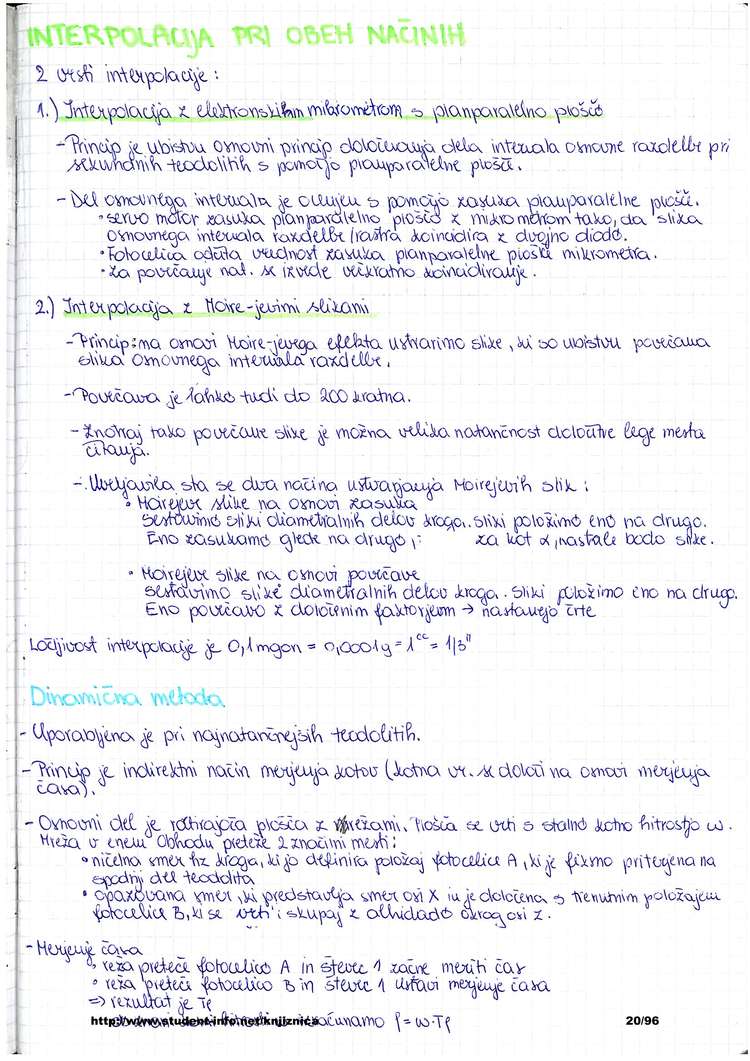 INTERPOLACIJA PRI OBEH NAČINIH
2 vrsti interpolacije:
1.) Interpolacija z elektronskim mikrometrom s planparalelno ploščo
- Princip je v bistvu osnovni princip določevanja dela intervala osnovne razdelbe pri
sekundnih teodolitih s pomočjo planparalelne plošče.
- Del osnovnega intervala je ocenjen s pomočjo zasuka planparalelne plošče.
• servo motor zasuka planparalelno ploščo z mikrometrom tako, da slika
osnovnega intervala razdelbe/rastra koincidira z dvojno diodo.
• Fotocelica odčita vrednost zasuka planparalelne plošče mikrometra.
• za povečanje nat. se izvede večkratno koincidiranje.
2.) Interpolacija z Moire-jevimi slikami
- Princip: na osnovi Moire-jevega efekta ustvarimo slike, ki so v bistvu povečava
slika osnovnega intervala razdelbe.
- Povečava je lahko tudi do 200 kratna.
- Znotraj tako povečane slike je možna velika natančnost določitve lege mesta
čitanja.
- Uveljavila sta se dva načina ustvarjanja Moirejevih slik:
• Moirejeve slike na osnovi zasuka
sestavimo sliki diametralnih delov kroga. Sliki položimo eno na drugo.
Eno zasukamo glede na drugo, za kot α, nastale bodo slike.
• Moirejeve slike na osnovi povečave
sestavimo slike diametralnih delov kroga. Sliki položimo eno na drugo.
Eno povečavo z določenim faktorjem → nastanejo črte
Ločljivost interpolacije je 0,1 mgon = 0,0001g = 1cc = 1/3"
Dinamična metoda
- Uporabljena je pri najnatančnejših teodolitih.
- Princip je indirektni način merjenja kotov (kotna vr. se določi na osnovi merjenja
časa).
- Osnovni del je rotirajoča plošča z režami. Plošča se vrti s stalno kotno hitrostjo ω.
Mreža v enem obhodu preteče 2 značilni mesti:
• ničelna smer hz kroga, ki jo definira položaj fotocelice A, ki je fiksno pritrjena na
spodnji del teodolita
• opazovana smer, ki predstavlja smer osi X in je določena s trenutnim položajem
fotocelice B, ki se vrti skupaj z alhidado okrog osi z.
- Merjenje časa
• reža preteče fotocelico A in števec 1 začne meriti čas
• reža preteče fotocelico B in števec 1 ustavi merjenje časa
⇒ rezultat je Tφ
http://www.student-info.net/knjiznica računamo φ=ω·Tφ 20/96